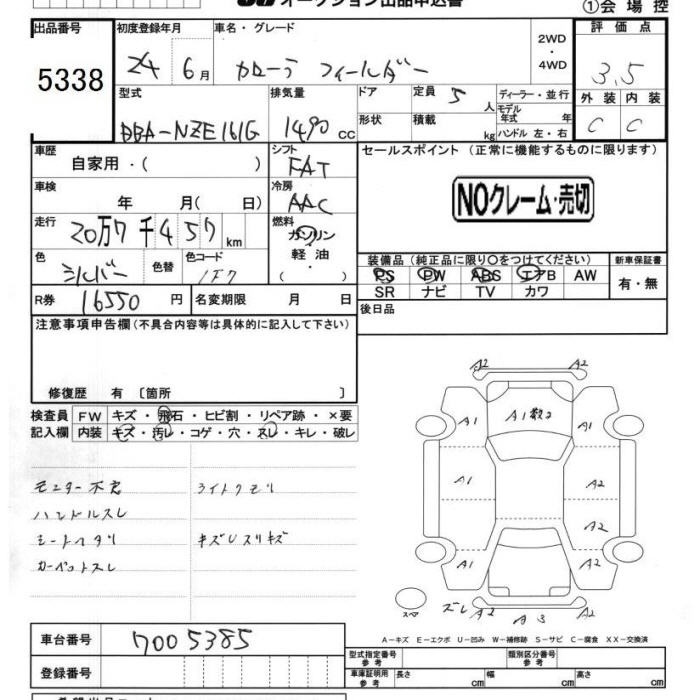 オークション出品申込書
①会場控
出品番号 初度登録年月 車名・グレード 2WD ・ 4WD 評価点
5338 24 6月 カローラ フィールダー 3.5
型式 排気量 ドア 定員 5 人 ディーラー・並行 外装 内装
モデル年式 年
DBA-NZE161G 1490 cc 形状 積載 kg ハンドル 左・右 C C
車歴 自家用・( ) シフト FAT セールスポイント (正常に機能するものに限ります)
車検 年 月( 日) 冷房 AAC NOクレーム・売切
走行 20万7千457 km 燃料 ガソリン 軽油・( )
色 シルバー 色替 色コード 1F7 装備品 (純正品に限り○をつけてください) 新車保証書
PS PW ABS エアB AW 有・無
SR ナビ TV カワ
R券 16550 円 名変期限 月 日 後日品
注意事項申告欄(不具合内容等は具体的に記入して下さい)
修復歴 有 〔箇所 〕
検査員 FW キズ・飛石・ヒビ割・リペア跡・×要
記入欄 内装 キズ・汚レ・コゲ・穴・スレ・キレ・破レ
モニター不良 ライトクモリ
ハンドルスレ
シートヘタリ キズUスリキズ
カーペットスレ
A2 A2
A1 A1数コ A1
A1 A2
A2
A1 A2
スペア ズレ A2 A3 A2
A-キズ E-エクボ U-凹み W-補修跡 S-サビ C-腐食 XX-交換済
車台番号 7005385 型式指定番号 参考 類別区分番号 参考
登録番号 車庫証明用 参考 長さ cm 幅 cm 高さ cm